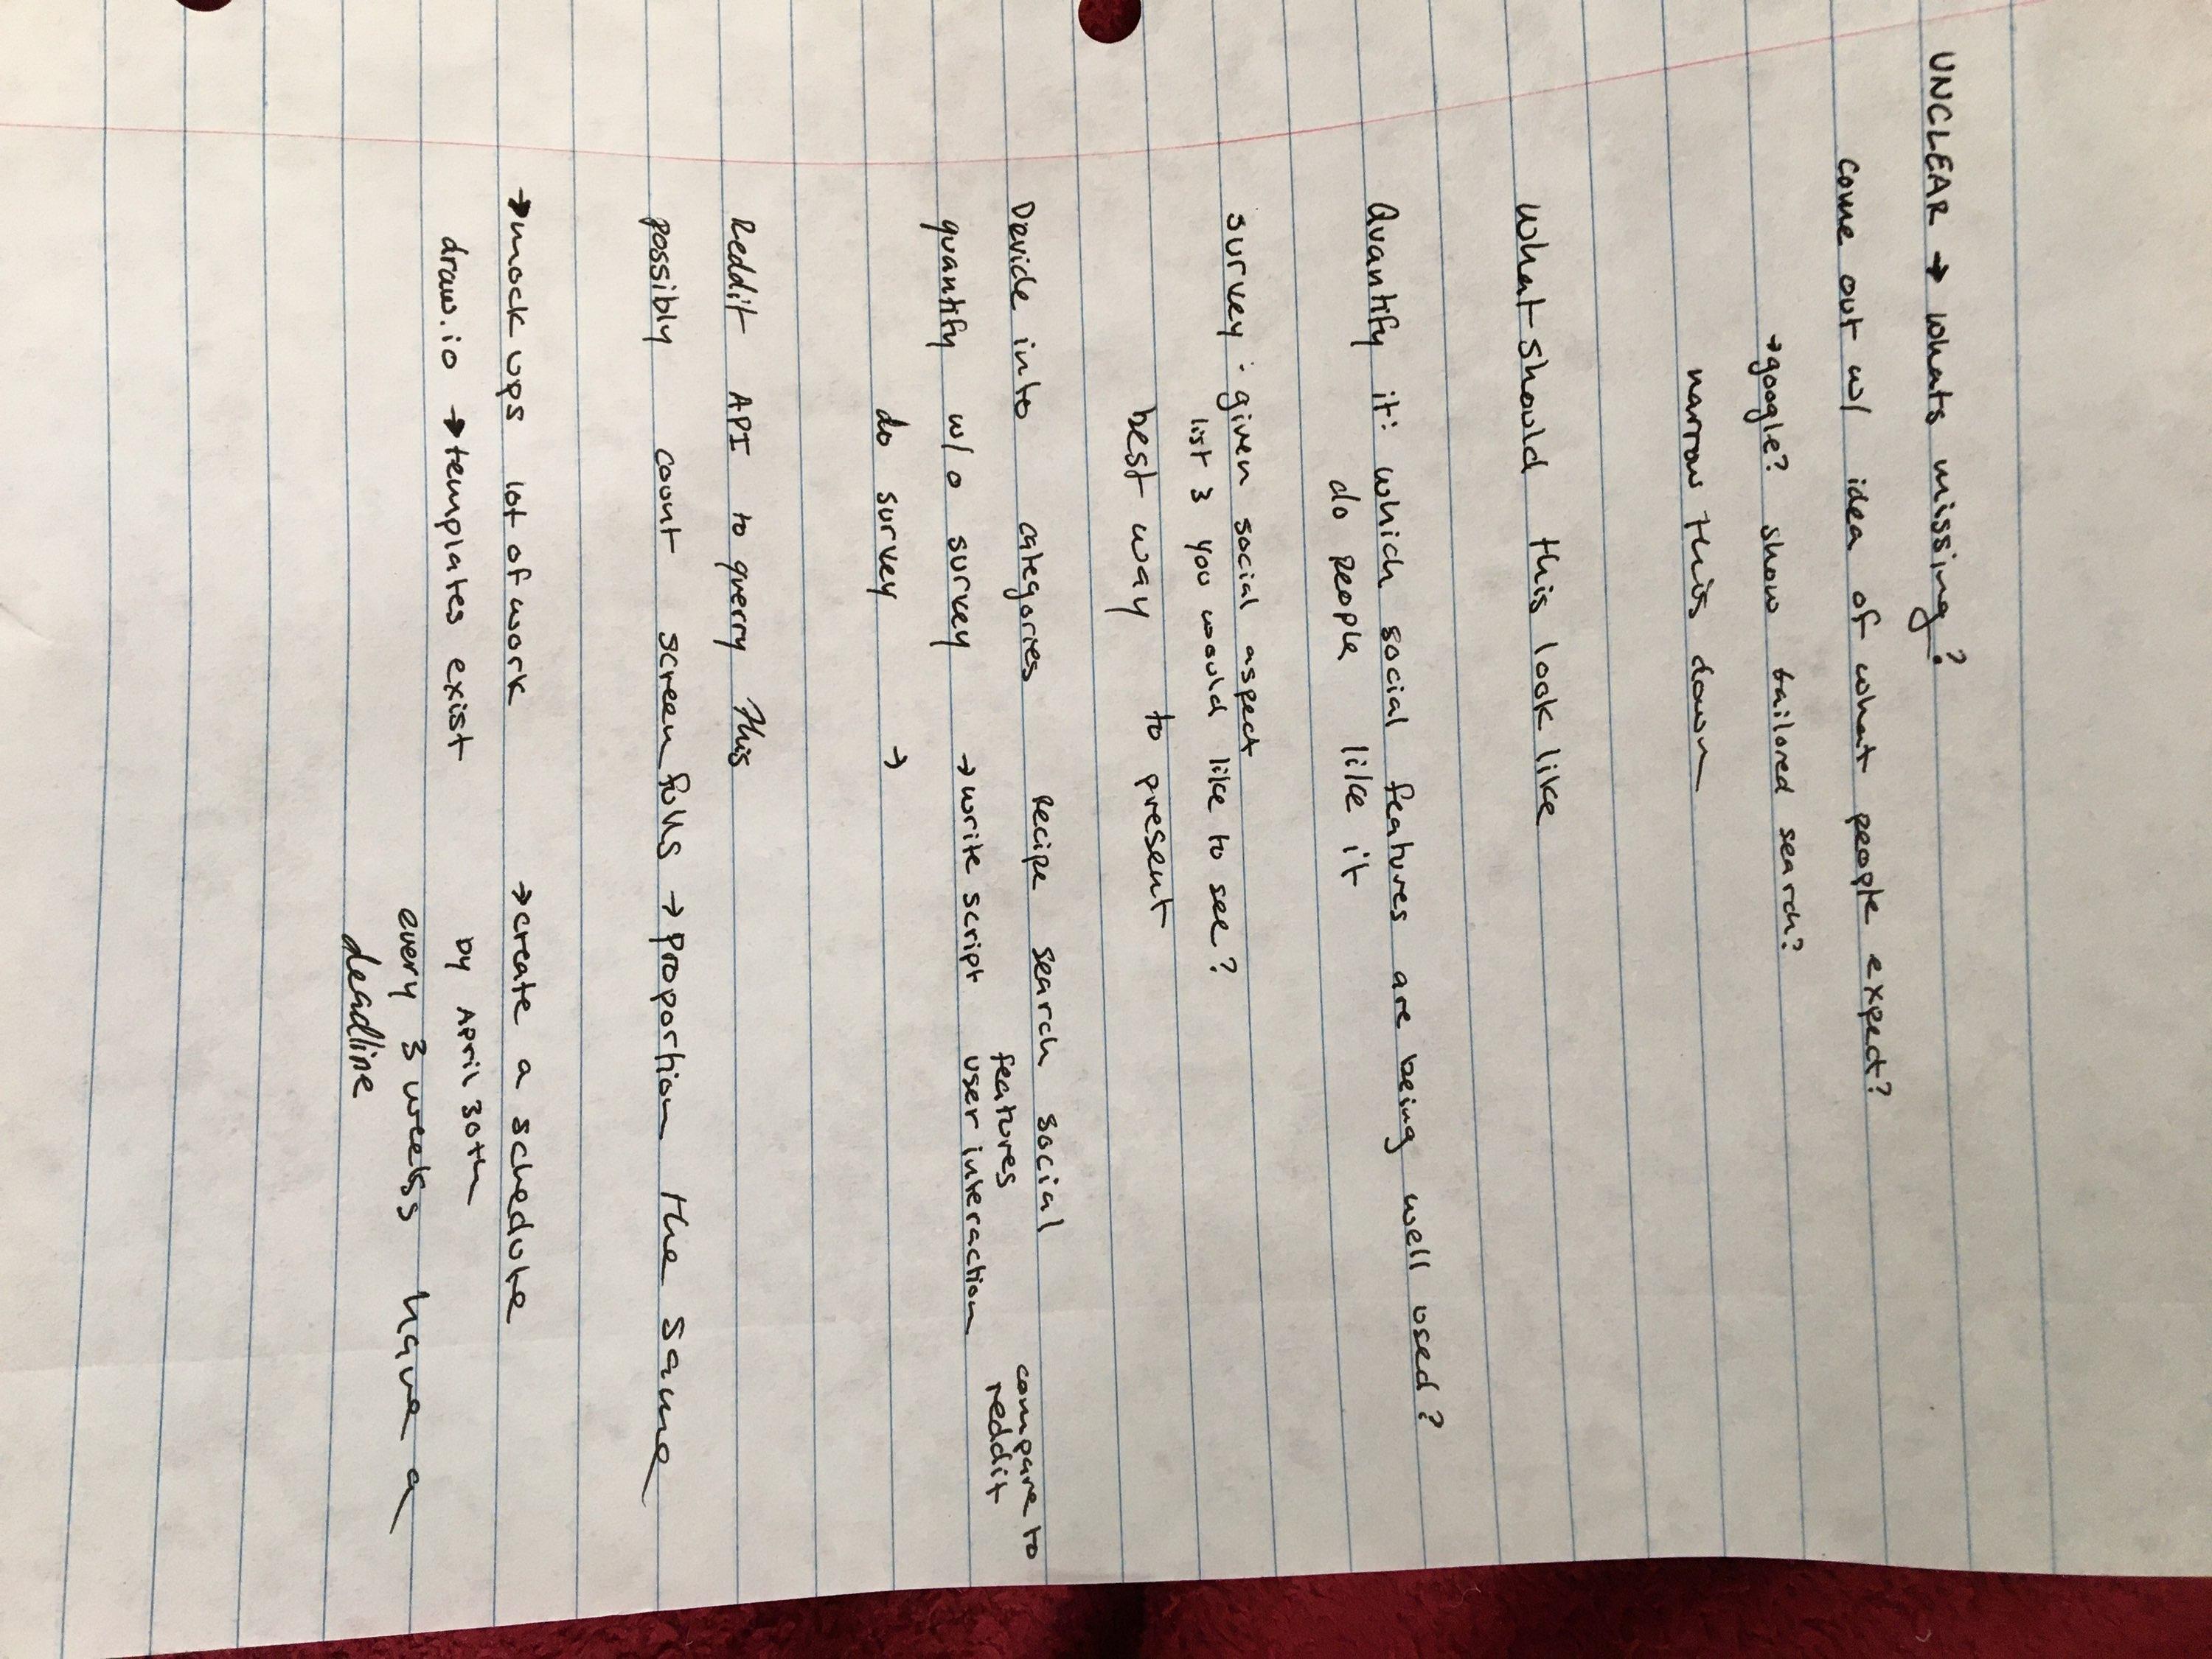 UNCLEAR → whats missing?
come out w/ idea of what people expect?
→google? show tailored search?
narrow this down
What should this look like
Quantify it: which social features are being well used?
do people like it
survey: given social aspect
list 3 you would like to see?
best way to present
Devide into categories Recipe search social
features compare to
reddit
quantify w/o survey →write script user interaction
do survey →
Reddit API to querry this
possibly count screenfulls → proportion the same
→mock ups lot of work →create a schedule
draw.io →templates exist by April 30th
every 3 weeks have a
deadline